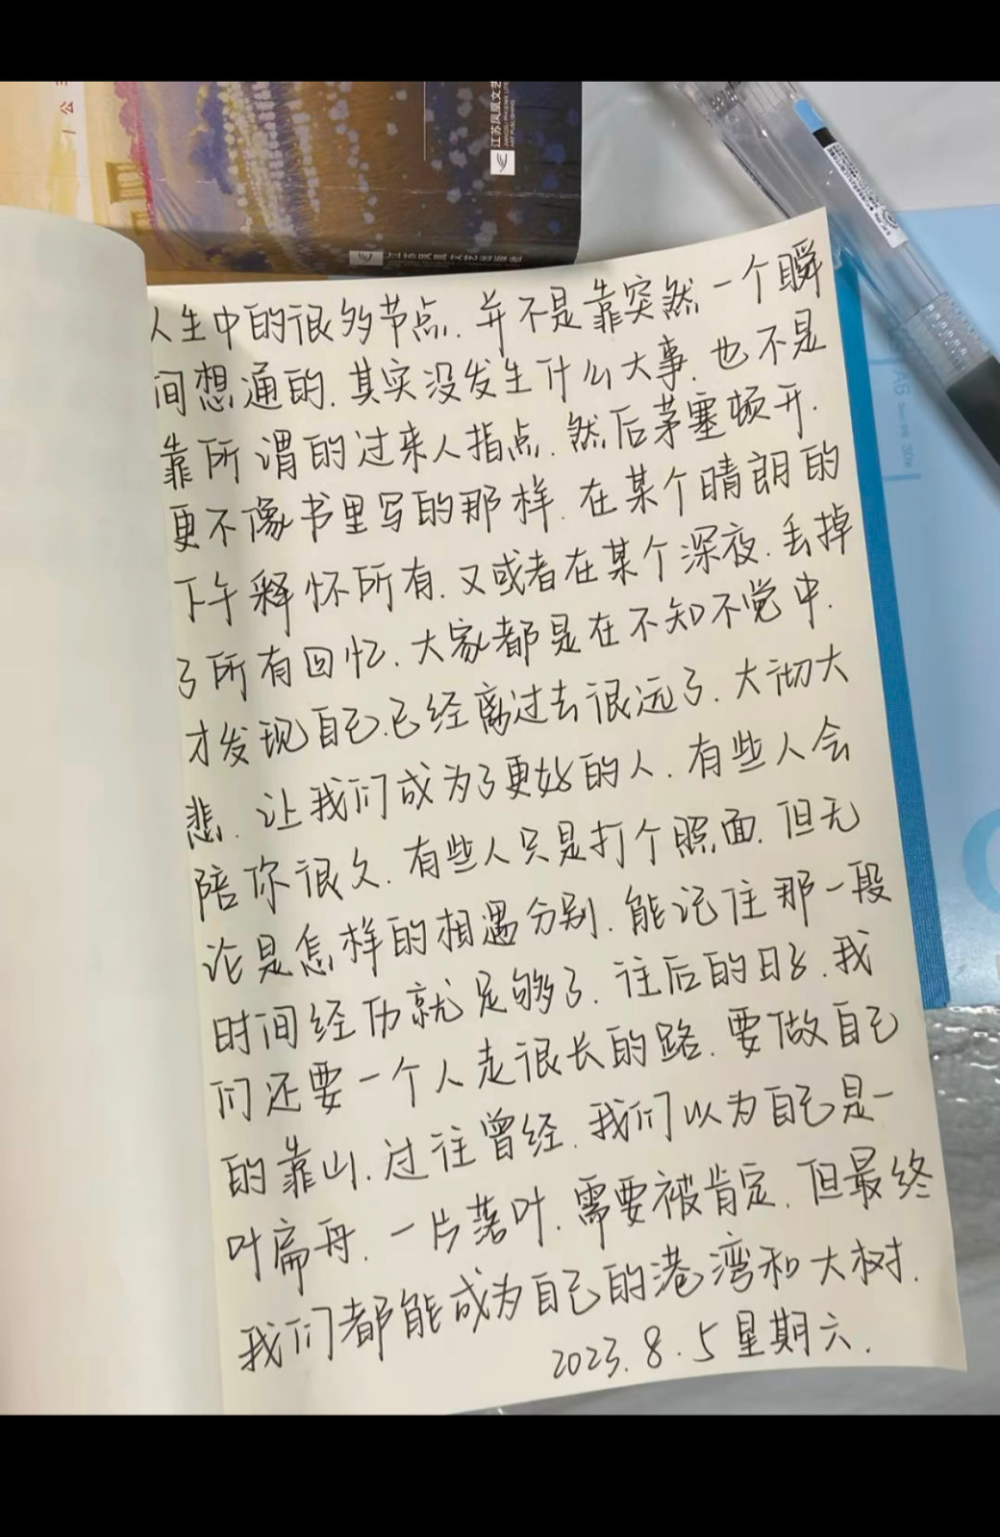 公
江苏凤凰文艺
JIANGSU PHOENIX LITE
ART PUBLISHING
江苏凤凰文艺出版社
A6
人生中的很多节点.并不是靠突然一个瞬
间想通的.其实没发生什么大事.也不是
靠所谓的过来人指点.然后茅塞顿开.
更不像书里写的那样.在某个晴朗的
下午释怀所有.又或者在某个深夜.丢掉
了所有回忆.大家都是在不知不觉中.
才发现自己已经离过去很远了.大彻大
悲.让我们成为了更好的人.有些人会
陪你很久.有些人只是打个照面.但无
论是怎样的相遇分别.能记住那一段
时间经历就足够了.往后的日子.我
们还要一个人走很长的路.要做自己
的靠山.过往曾经.我们以为自己是一
叶扁舟.一片落叶.需要被肯定.但最终
我们都能成为自己的港湾和大树.
2023.8.5星期六.